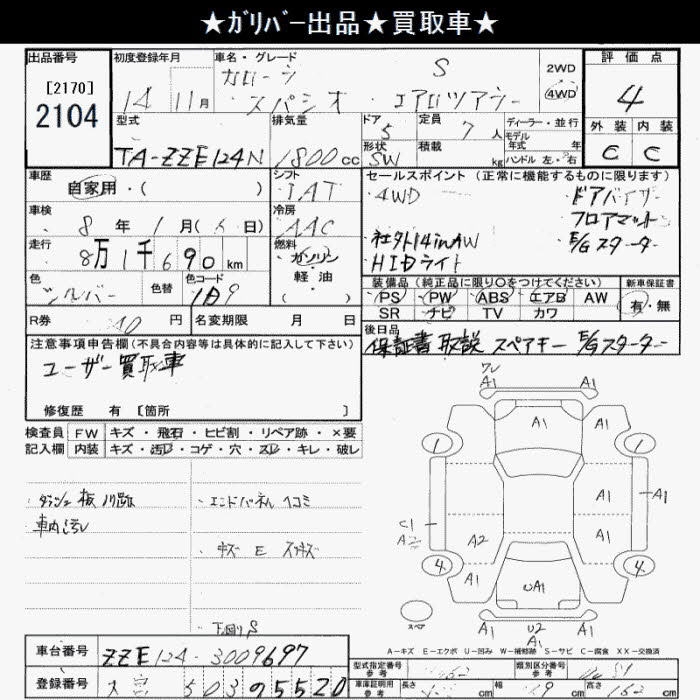 ★ｶﾞﾘﾊﾞｰ出品★買取車★
出品番号
[2170]
2104
初度登録年月
14年 11月
車名・グレード
カローラ S
・スパシオ ・エアロツアラー
2WD
4WD
評価点
4
外装 内装
C C
型式
TA-ZZE124N
排気量
1800cc
ドア
5
形状
SW
定員
7人
積載
kg
ディーラー・並行
モデル
年式 年
ハンドル 左・右
車歴
自家用・( )
シフト
IAT
車検
8年 1月( 日)
冷房
AAC
走行
8万1千690km
燃料
ガソリン
・
軽油
( )
色
シルバー
色替
色コード
1D9
R券
円
名変期限 月 日
セールスポイント(正常に機能するものに限ります)
・4WD
・ドアバイザー
・フロアマット
・社外14inAW
・E/Gスターター
・HIDライト
装備品(純正品に限り○をつけてください)
新車保証書
PS PW ABS エアB AW
SR ナビ TV カワ
有・無
後日品
保証書 取説 スペアキー E/Gスターター
注意事項申告欄(不具合内容等は具体的に記入して下さい)
ユーザー買取車
修復歴 有 [箇所 ]
検査員
記入欄
FW キズ・飛石・ヒビ割・リペア跡・×要
内装 キズ・汚レ・コゲ・穴・スレ・キレ・破レ
車内汚レ
・エンドパネル ヘコミ
下廻りS
ワレ
A1 A1
A1
1 1
A1 A1
C1
A2
A2 A1
4 4
A1 A1
UA1
スペア
U2
A1 A1
A1
A－キズ E－エクボ U－凹み W－補修跡 S－サビ C－腐食 XX－交換済
車台番号 ZZE124-3009697
登録番号 503 05520
型式指定番号
参考
類別区分番号
参考
車庫証明用
参考
長さ cm 幅 cm 高さ cm